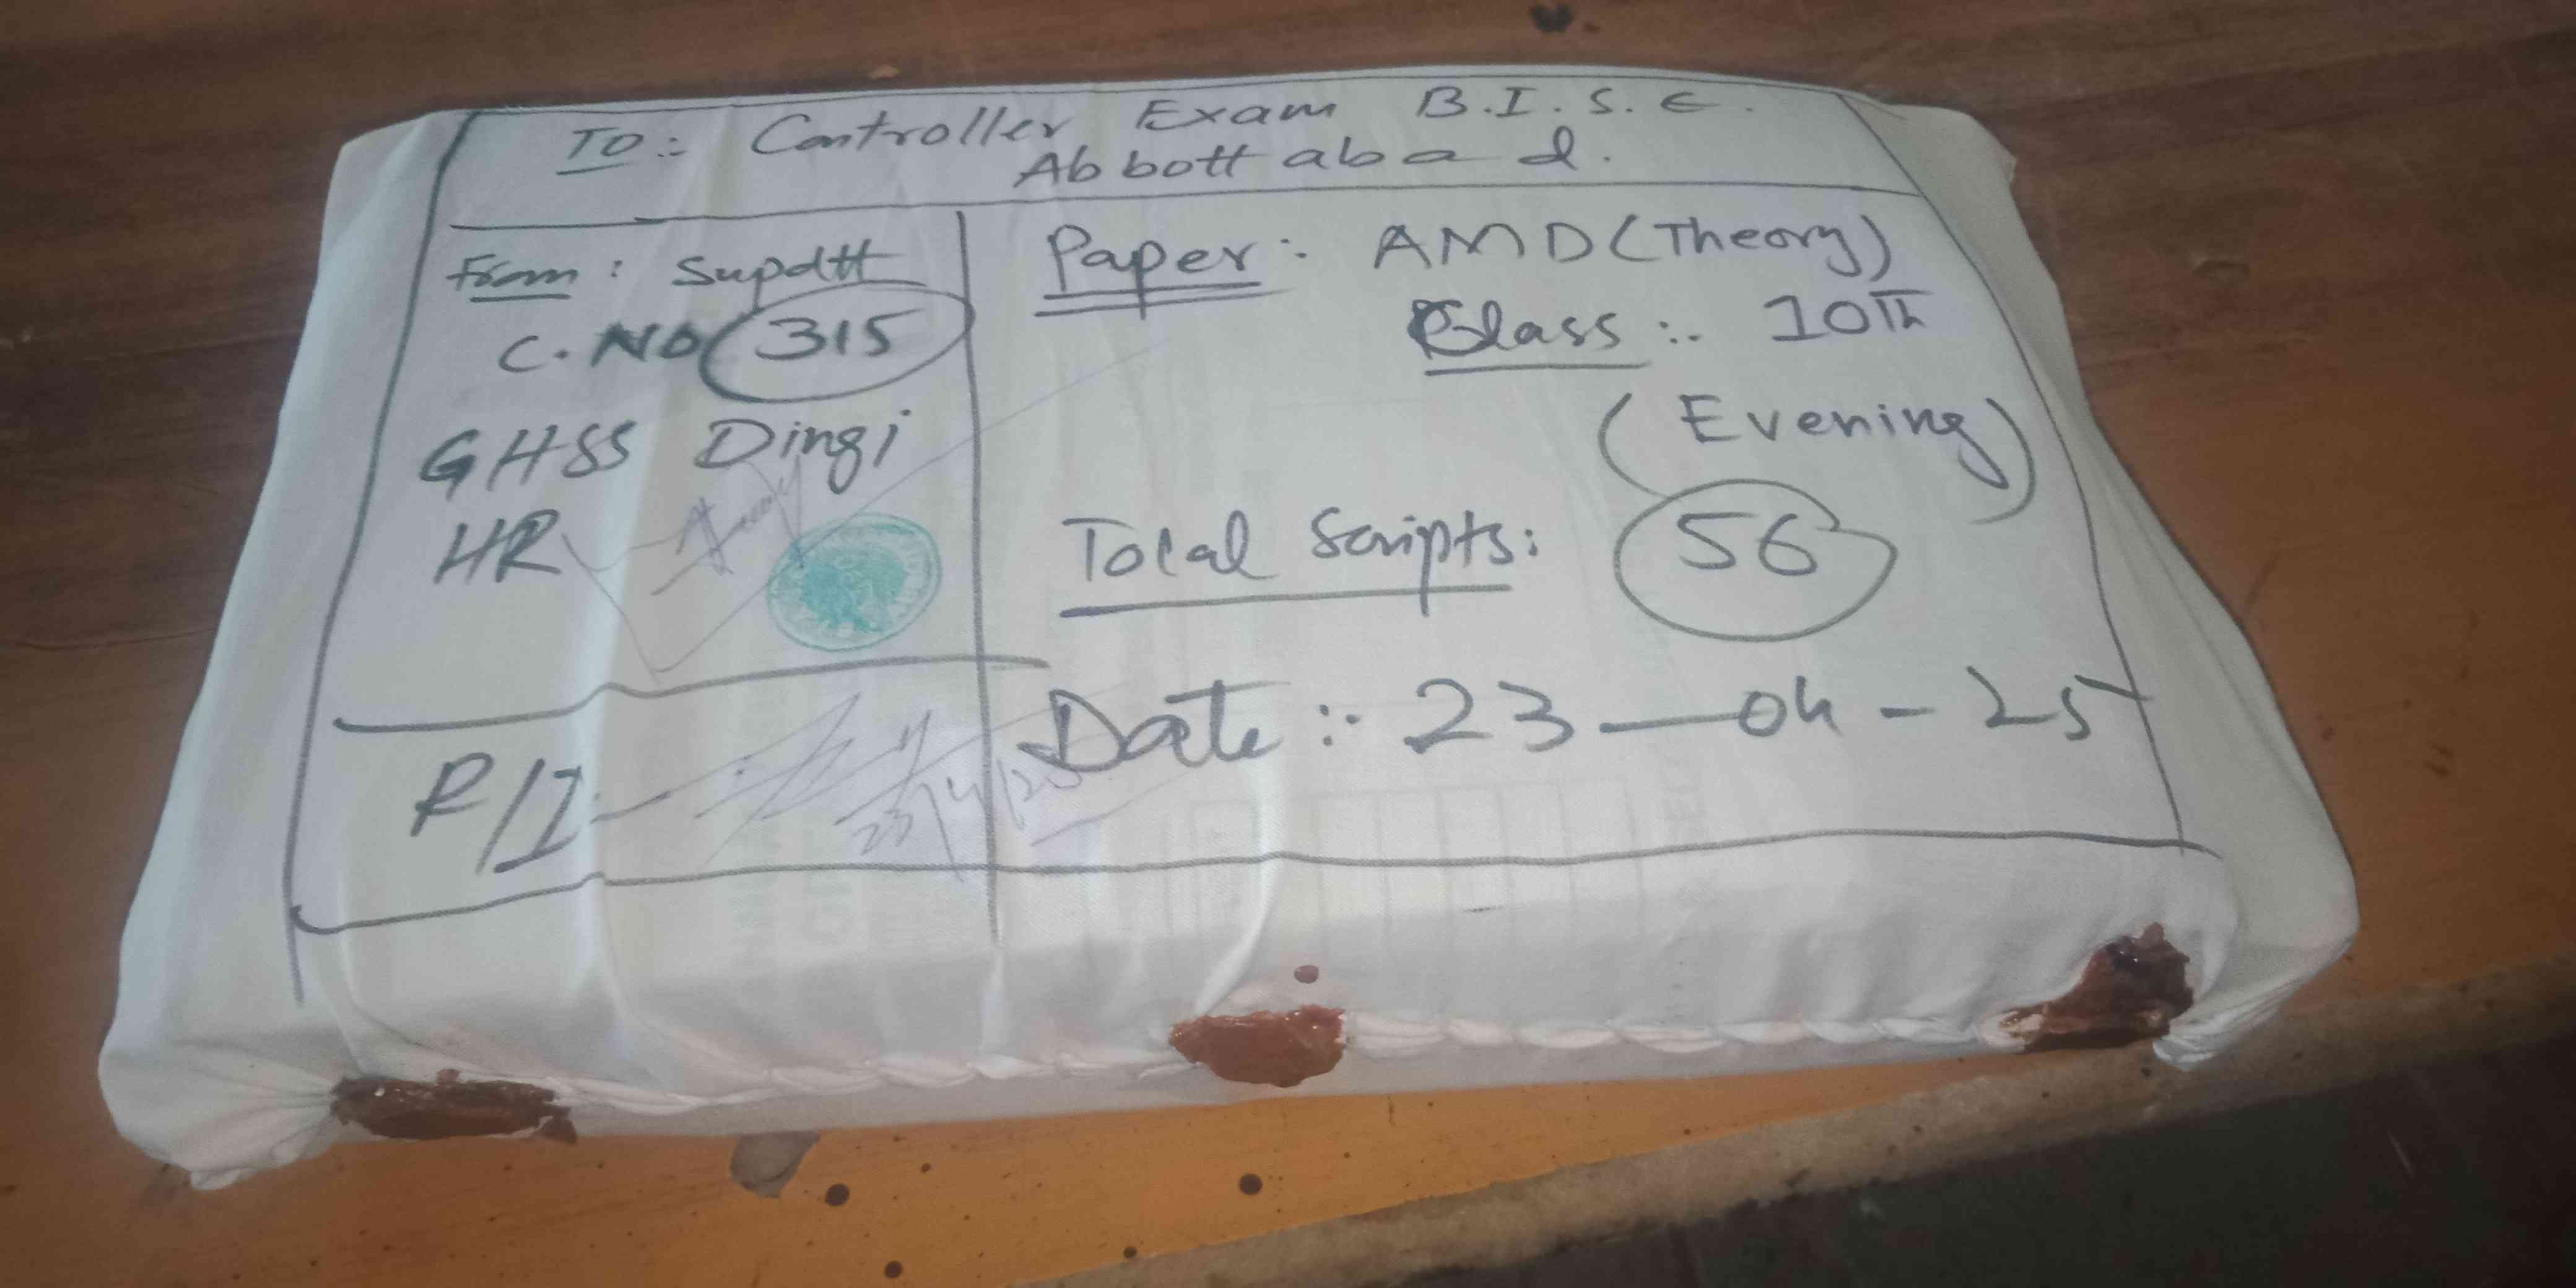 To:- Controller Exam B.I.S.E.
Abbottabad.
From: Supdtt
C. No 315
GHSS Dingi
HR
R/I
23/4/25
Paper:- AMD (Theory)
Class:- 10th
(Evening)
Total Scripts: 56
Date:- 23-04-25